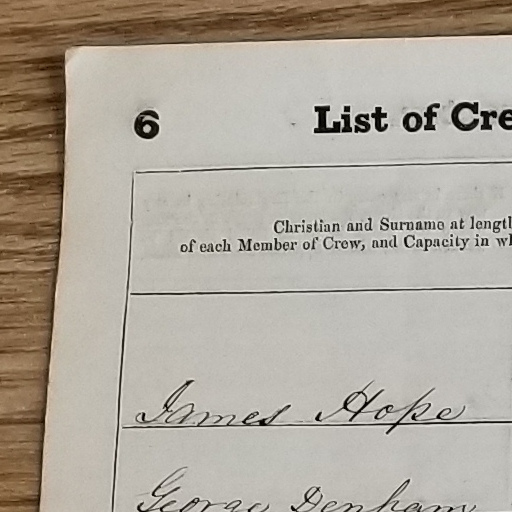 6 List of Cre
Christian and Surname at lengt
of each Member of Crew, and Capacity in wh
James Hope
George Denham